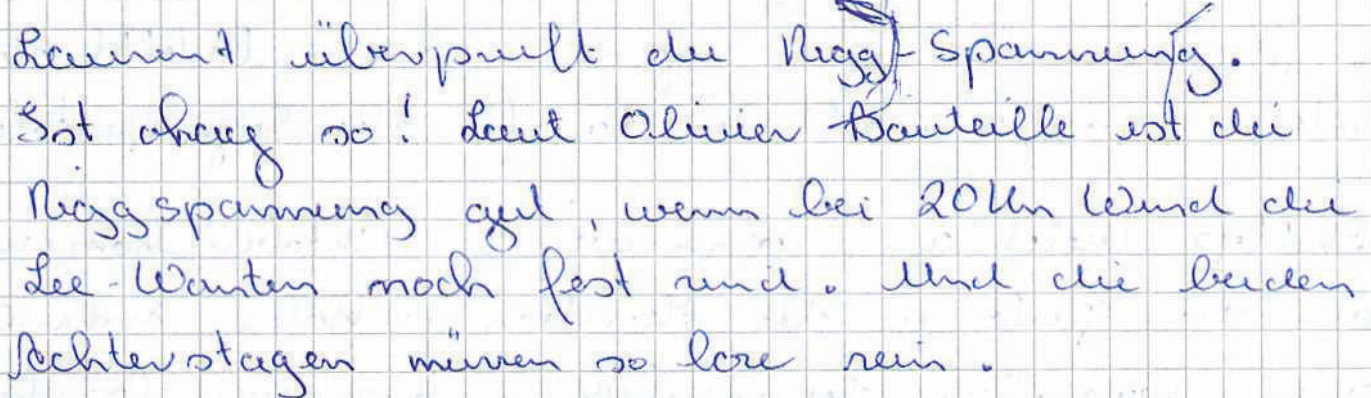 Laurent überprüft die Rigg-Spannung.
Ist okay so! Laut Olivier Bouteille ist die
Riggspannung gut, wenn bei 20 Kn Wind die
Lee-Wanten noch fest sind. Und die beiden
Achterstagen müssen so lose sein.